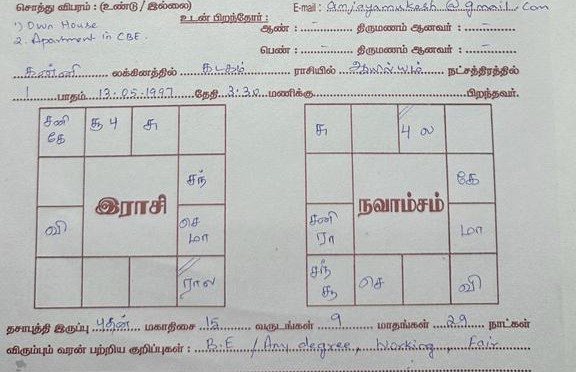 சொத்து விபரம் : (உண்டு / இல்லை) E-mail : anjayamukesh@gmail.com
1) Own House உடன் பிறந்தோர் :
ஆண் : - திருமணம் ஆனவர் : -
2. Apartment in CBE.
பெண் : - திருமணம் ஆனவர் : -
கன்னி லக்கினத்தில் கடகம் ராசியில் ஆயில்யம் நட்சத்திரத்தில்
1 பாதம் 13.05.1997 தேதி 3:30 மணிக்கு பிறந்தவர்.
சனி கே சூ பு சு
சந்
இராசி
வி செ மா
ரா ல
சு பு ல
கே
நவாம்சம்
சனி ரா மா
சந் சூ செ வி
தசாபுத்தி இருப்பு புதன் மகாதிசை 15 வருடங்கள் 9 மாதங்கள் 29 நாட்கள்
விரும்பும் வரன் பற்றிய குறிப்புகள் : B.E / Any degree, Working, Fair